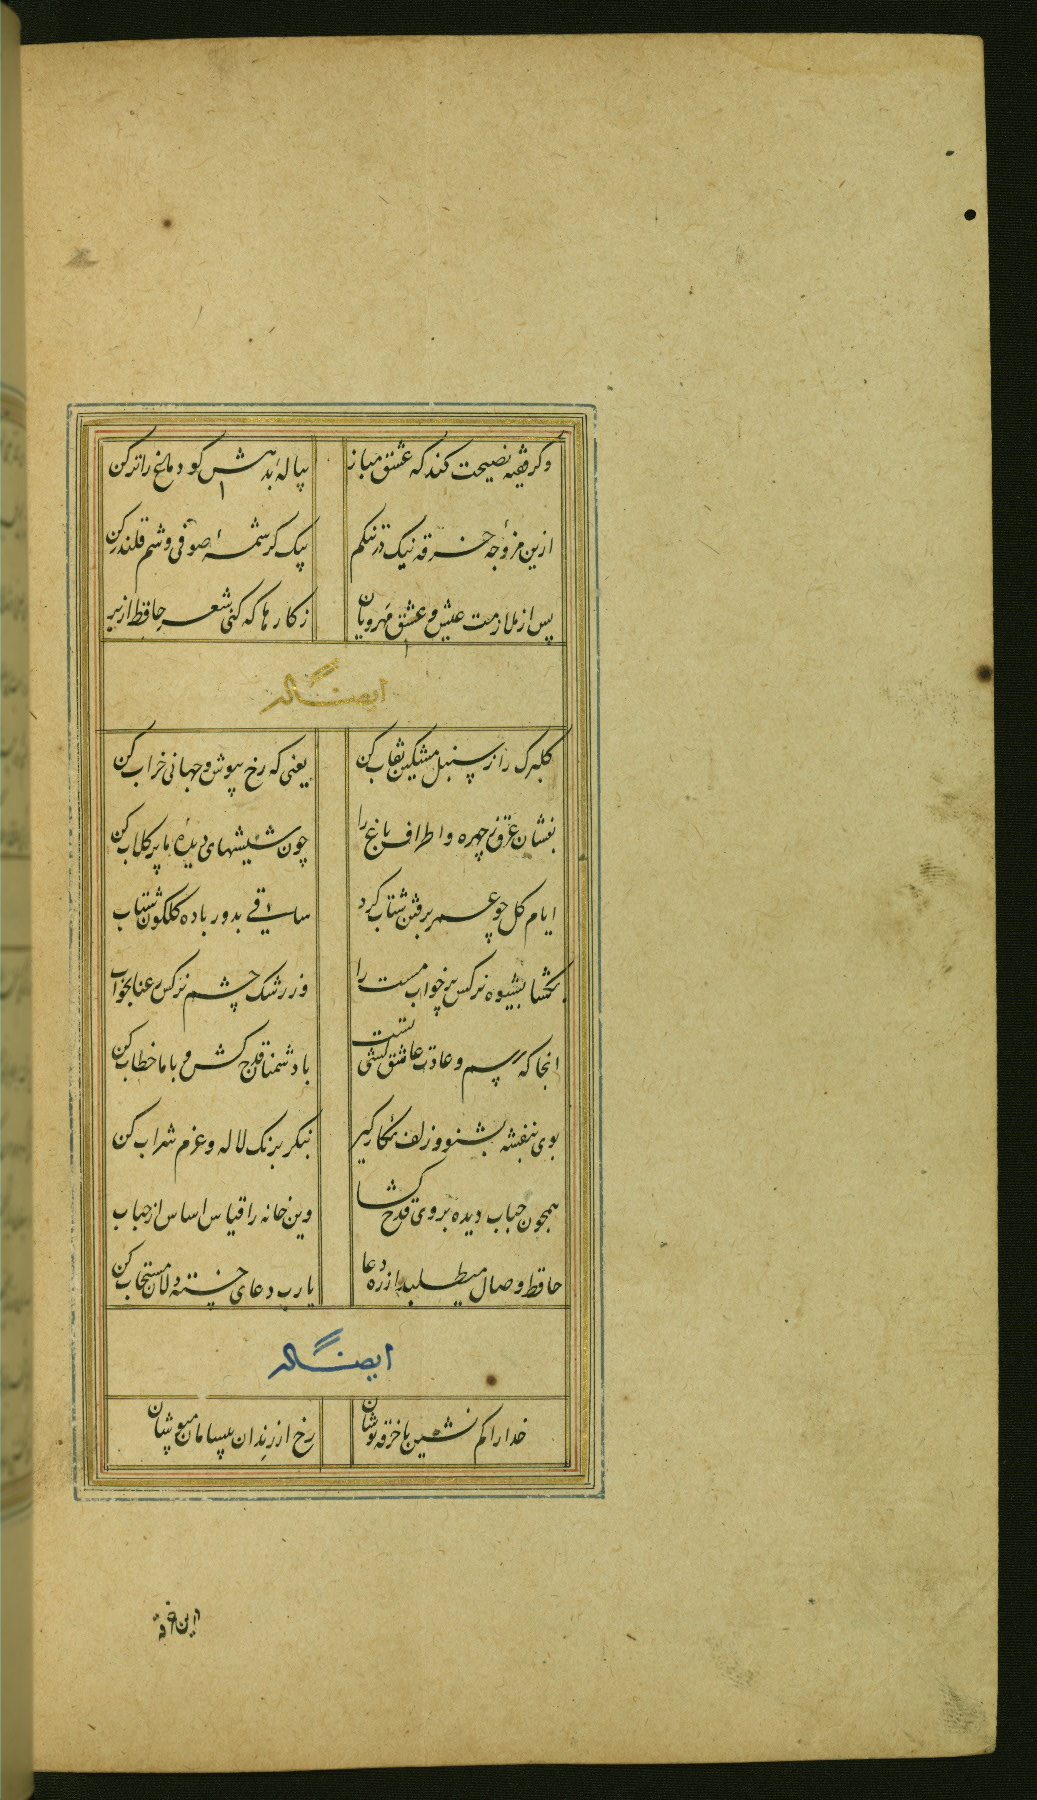 وکر فقیه نصیحت کند که عشق مباز پیالهٔ بدهش کو دماغ را تر کن
ازین مزوجه خرقه نیک در تنکم بیک کرشمهٔ صوفی وشم قلندر کن
پس از ملازمت عیش و عشق مهرویان ز کارها که کنی شعر حافظ از بر
ایضا له
کلبرک را ز سنبل مشکین نقاب کن یعنی که رخ بپوش و جهانی خراب کن
بفشان عرق ز چهره و اطراف باغ را چون شیشهای دیدهٔ ما پر کلاب کن
ایام کل چو عمر برفتن شتاب کرد ساقی بدور باده کلکون شتاب
بکشا بشیوه نرکس پرخواب مست را وز رشک چشم نرکس رعنا بخواب
انجا که رسم و عادت عاشق کشی تست با دشمنان قدح کش و با ما خطاب کن
بوی بنفشه بشنو و زلف نکار کیر بنکر برنک لاله و عزم شراب کن
همچون حباب دیده بروی قدح کشا وین خانه را قیاس اساس از حباب
حافظ وصال میطلبد از ره دعا یارب دعای خسته دلان مستجاب کن
ایضا له
خدا را کم نشین با خرقه پوشان رخ از رندان بیسامان مپوشان
این خرقه